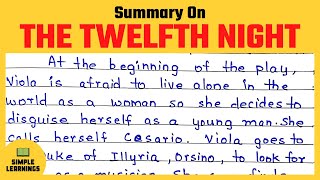 Summary On
THE TWELFTH NIGHT
At the beginning of the play,
Viola is afraid to live alone in the
world as a woman so she decides to
disguise herself as a young man. She
calls herself Cesario. Viola goes to
uke of Illyria, Orsino, to look for
as a musician. She
SIMPLE
LEARNINGS